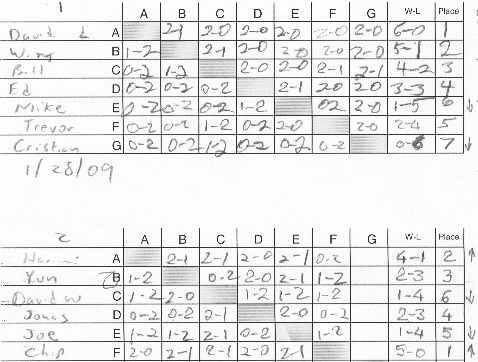 1
A B C D E F G W-L Place
David L A 2-1 2-0 2-0 2-0 2-0 2-0 6-0 1
B 1-2 2-1 2-0 2-0 2-0 2-0 5-1 2
Bill C 0-2 1-2 2-0 2-0 2-1 2-1 4-2 3
Ed D 0-2 0-2 0-2 2-1 20 20 3-3 4
Mike E 0-2 0-2 0-2 1-2 02 2-0 1-5 6 ↓
Trevor F 0-2 0-2 1-2 0-2 2-0 2-0 2-4 5
Cristian G 0-2 0-2 1-2 0-2 0-2 0-2 0-6 7 ↓
1/28/09
2
A B C D E F G W-L Place
A 2-1 2-1 2-0 2-1 0-2 4-1 2 ↑
Yun B 1-2 0-2 2-0 2-1 1-2 2-3 3
David W C 1-2 2-0 1-2 1-2 1-2 1-4 6 ↓
Jonas D 0-2 0-2 2-1 2-0 0-2 2-3 4
Joe E 1-2 1-2 2-1 0-2 1-2 1-4 5 ↓
Chip F 2-0 2-1 2-1 2-0 2-1 5-0 1 ↑